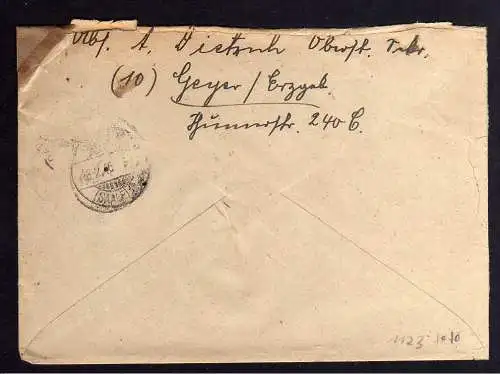 Abs. A. Dietrich Oberst. Sekr.
(10) Geyer / Erzgeb.
Thumerstr. 240 C.
(SAALE)
1123 1010